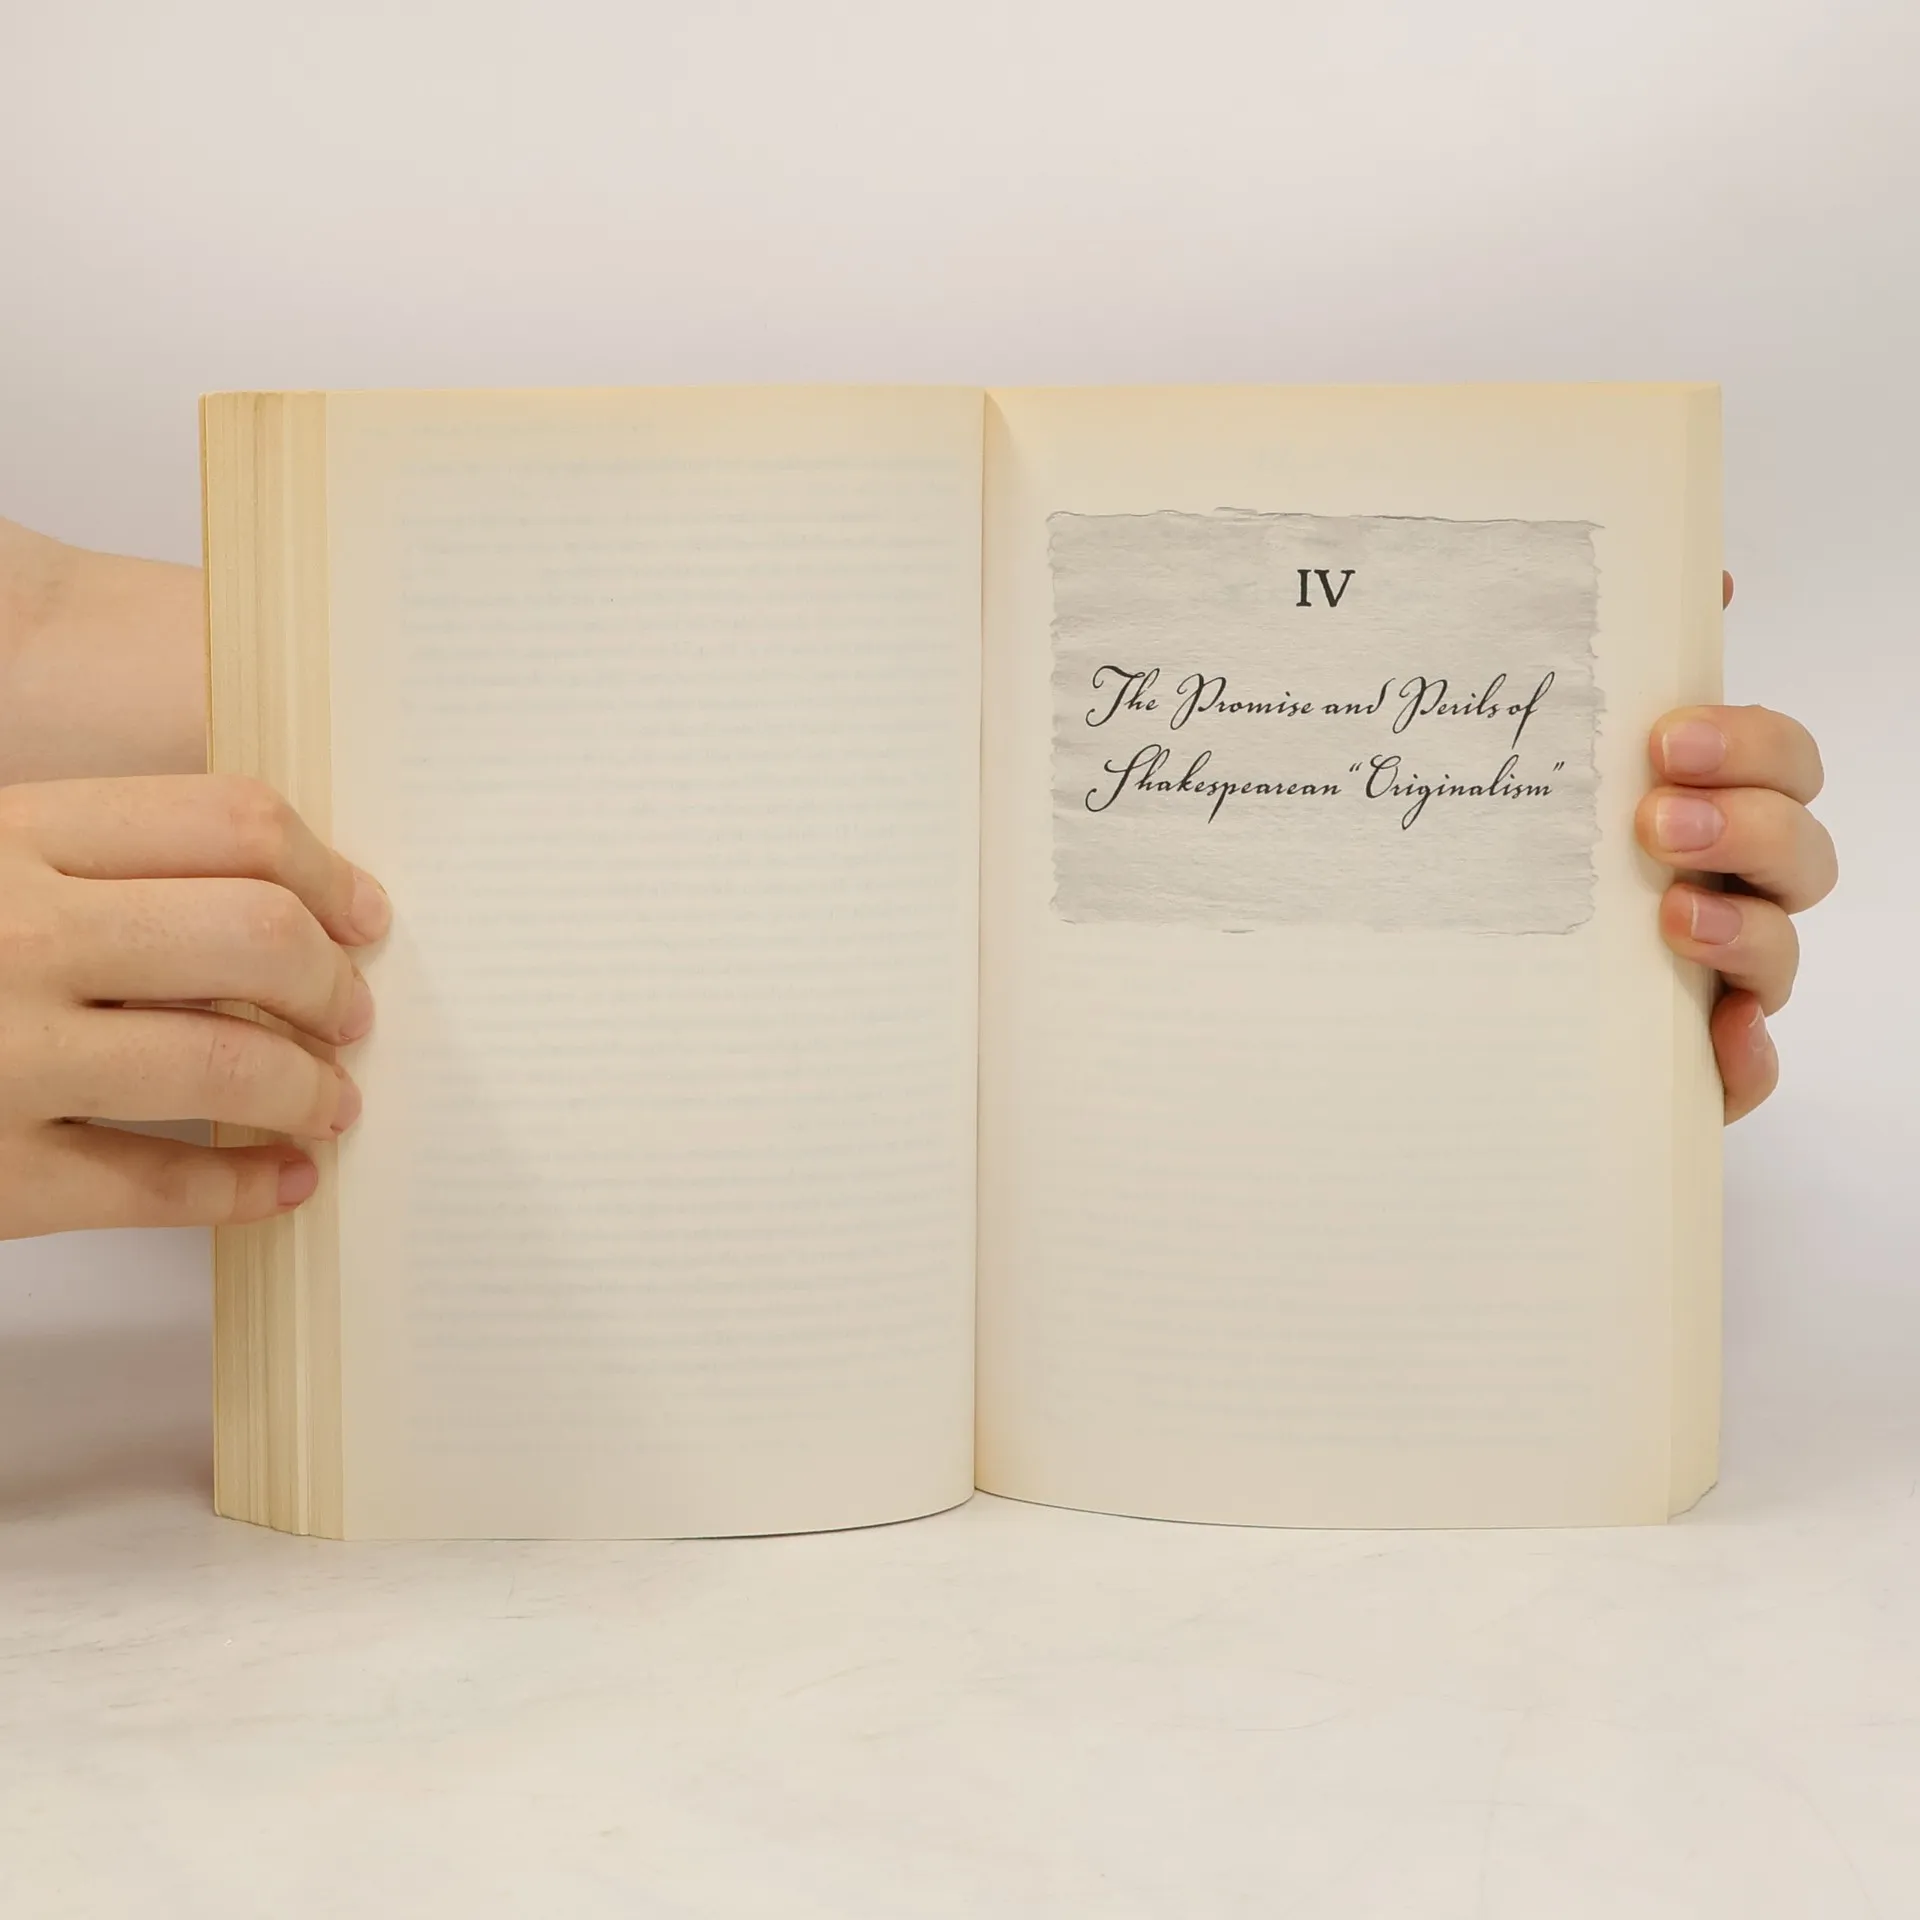 IV
The Promise and Perils of
Shakespearean “Originalism”